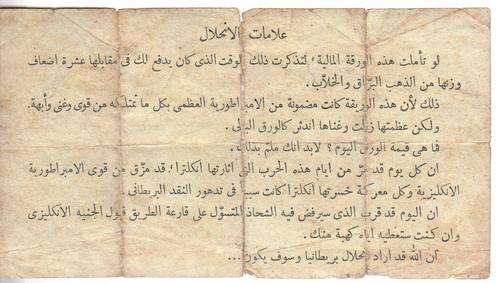 علامات الانحلال
لو تأملت هذه الورقة المالية، لتذكرت ذلك الوقت الذى كان يدفع لك فى مقابلها عشرة اضعاف
وزنها من الذهب البرّاق والخلّاب.
ذلك لأن هذه الوريقة كانت مضمونة من الامبراطورية العظمى بكل ما تمتلكه من قوى وغنى وأبهة.
ولكن عظمتها زالت وغناها اندثر كالورق البالى.
فما هى قيمة الورق اليوم؟ لابد انك ملمّ بذلك.
ان كل يوم قد مرّ من ايام هذه الحرب التى اثارتها انكلترا، قد مزّق من قوى الامبراطورية
الانكليزية وكل معركة خسرتها انكلترا كانت سببا فى تدهور النقد البريطانى.
ان اليوم قد قرب الذى سيرفض فيه الشحاذ المتسوّل على قارعة الطريق قبول الجنيه الانكليزى
وان كنت ستعطيه اياه كهبة منك.
ان الله قد اراد انحلال بريطانيا وسوف يكون...